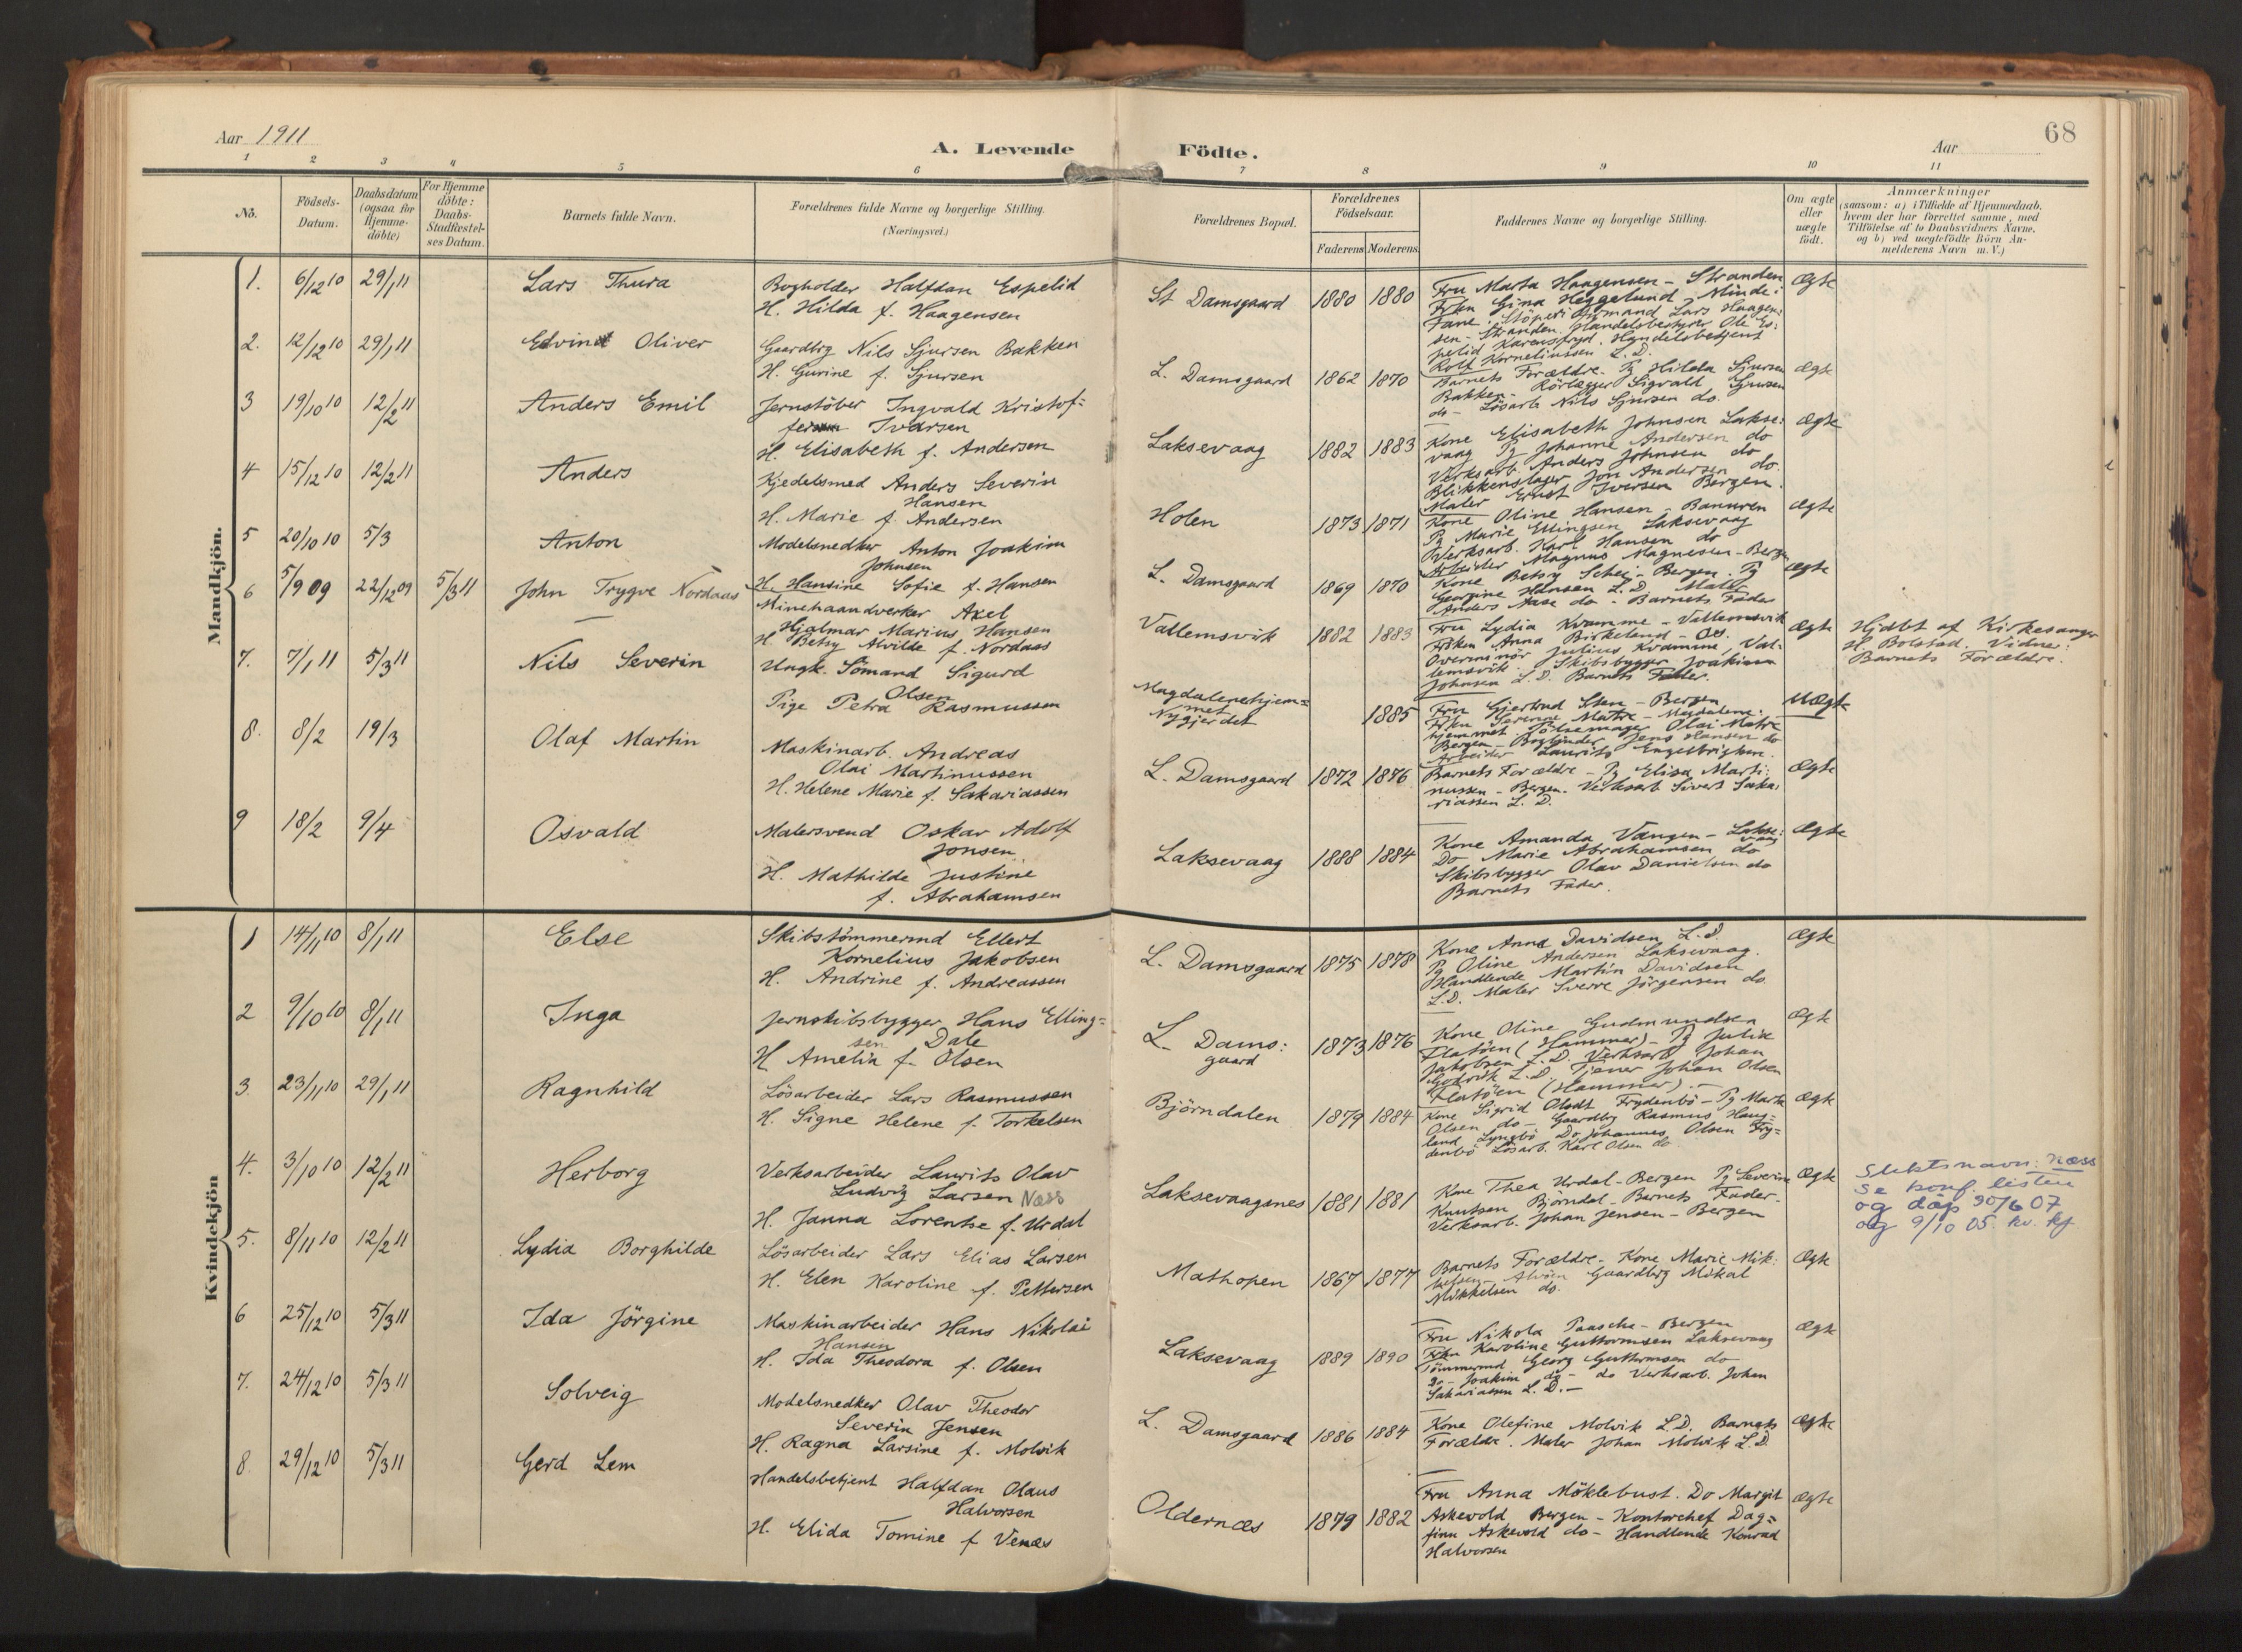 Aar 1911
A. Levende Födte.
Aar
68
1 2 3 4 5 6 7 8 9 10 11
No. Födsels-Datum. Daabsdatum (ogsaa for Hjemme-döbte) For Hjemme döbte: Daabs-Stadfæstel-ses Datum. Barnets fulde Navn. Forældrenes fulde Navne og borgerlige Stilling. (Næringsvei.) Forældrenes Bopæl. Forældrenes Födselsaar. Faderens Moderens Faddernes Navne og borgerlige Stilling. Om ægte eller uægte födt. Anmærkninger (saasom: a) i Tilfælde af Hjemmedaab, hvem der har forrettet samme, med Tilföielse af to Daabsvidners Navne, og b) ved uægtefödte Börn An-melderens Navn m. V.)
Mandkjön.
1. 6/12 10 29/1 11 Lars Thura
Bogholder Halfdan Espelid
H. Hilda f. Haagensen
St Damsgaard 1880 1880
Fru Marta Haagensen - Stranden
Frkn Gina Heggelund, Minde i
Fane. Stöperiformand Lars Haagen:
sen - Stranden. Handelsbestyrer Ole Es:
pelid Karensfryd. Handelsbetjent
Rolf Korneliussen L. D.
Ægte
2. 12/12 10 29/1 11 Edvin Oliver
Gaardbrg Nils Sjursen Bakken
H. Gurine f. Sjursen
L. Damsgaard 1862 1870
Barnets Forældre. Pg Hilda Sjursen
Bakken - Rörlægger Sigvald Sjursen
do - Lösarb Nils Sjursen do.
Ægte
3 19/10 10 12/2 11 Anders Emil
Jernstöber Ingvald Kristof=
fer Ivarsen
H. Elisabeth f. Andersen
Laksevaag 1882 1883
Kone Elisabeth Johnsen Lakse:
vaag Pg Johanne Andersen do
Verksarb. Anders Johnsen do
Blikkenslager Jon Andersen do.
Maler Ernst Iversen Bergen.
Ægte
4 15/12 10 12/2 11 Anders
Kjedelsmed Anders Severin
Hansen
H. Marie f. Andersen
Holen 1873 1871
Kone Oline Hansen - Banuren
Pg Marie Ellingsen Laksevaag
Verksarb. Karl Hansen do
Arbeider Magnus Magnesen - Bergen
Ægte
5 20/10 10 5/3 Anton
Modelsnedker Anton Joakim
Johnsen
H. Hansine Sofie f. Hansen
L. Damsgaard 1869 1870
Kone Betsy Schei - Bergen. Pg
Georgine Hansen L. D. Maler
Anders Aase do - Barnets Fader
Ægte
6 5/9 09 22/12 09 5/3 11 John Trygve Nordaas
Minehaandverker Axel
Hjalmar Marius Hansen
H. Betsy Alvilde f. Nordaas
Vallemsvik 1882 1883
Fru Lydia Kvamme - Vallemsvik
Frken Anna Birkeland - Os.
Overminör Julius Kvamme, Val-
lemsvik. Skibsbygger Joakim
Johnsen L. D. Barnets Fader.
Ægte
Hjdbt af Kirkesanger
H. Bolstad. Vidner:
Barnets Forældre.
7. 7/1 11 5/3 11 Nils Severin
Ungk. Sömand Sigurd
Olsen
Pige Petra Rasmussen
Magdalenehjem=
met
Nygjerdet
1885
Fru Gjertrud Sten - Bergen
Frkn Severine Matre - Magdalene:
hjemmet Pölsemager Olai Matre
Bergen - Bogbinder Jens Hansen do
Arbeider Laurits Engelbrigtsen.
Uægte
8. 8/2 19/3 Olaf Martin
Maskinarb. Andreas
Olai Martinussen
H. Helene Marie f. Sakariassen
L. Damsgaard 1872 1876
Barnets Forældre - Pg Elisa Marti:
nussen - Bergen. Verksarb Sivert Saka:
riassen L. D.
Ægte
9 18/2 9/4 Osvald
Malersvend Oskar Adolf
Jonsen
H. Mathilde Justine
f. Abrahamsen
Laksevaag 1888 1884
Kone Amanda Vangen - Lakse:
vaag
Do Marie Abrahamsen do
Skibsbygger Olav Danielsen do
Barnets Fader.
Ægte
Kvindekjön
1 14/11 10 8/1 11 Else
Skibstömmermd Ellert
Kornelius Jakobsen
H. Andrine f. Andreassen
L. Damsgaard 1875 1878
Kone Anna Davidsen L. D.
Pg Oline Andersen Laksevaag.
Handlende Martin Davidsen
L. D. Maler Sverre Jörgensen do.
Ægte
2 9/10 10 8/1 11 Inga
Jernskibsbygger Hans Elling=
sen Dale
H Amelia f. Olsen
L. Dams:
gaard
1873 1876
Kone Oline Gudmundsen
Flatöen (Hammer) - Pg Julie
Jakobsen L. D. Verksarb Johan
Godvik L. D. Tjener Johan Olsen
Flatöen (Hammer). -
Ægte
3 23/11 10 29/1 11 Ragnhild
Lösarbeider Lars Rasmussen
H. Signe Helene f. Torkelsen
Björndalen 1879 1884
Kone Sigrid Olsdt Frydenbö - Pg Marta
Olsen do - Gaardbrg Rasmus Haug=
land Lyngbö Do Johannes Olsen Fry=
denbö Lösarb. Karl Olsen do
Ægte
4. 3/10 10 12/2 11 Herborg
Verksarbeider Laurits Olav
Ludvig Larsen Næss
H. Janna Lorentse f. Urdal
Laksevaagsnes 1881 1881
Kone Thea Urdal - Bergen Pg Severine
Knutsen Björndal - Barnets Fader -
Verksarb. Johan Jensen - Bergen
Ægte
Slektsnavn: Næss
se konf. listen
og dåp 30/6 07
og 9/10 05. kv. kj.
5. 8/11 10 12/2 11 Lydia Borghilde
Lösarbeider Lars Elias Larsen
H. Elen Karoline f. Pettersen
Mathopen 1867 1877
Barnets Forældre - Kone Marie Mik:
kelsen - Alvöen Gaardbrg Mikal
Mikkelsen do.
Ægte
6 25/12 10 5/3 11 Ida Jörgine
Maskinarbeider Hans Nikolai
Hansen
H. Ida Theodora f. Olsen
Laksevaag 1889 1890
Fru Nikola Paasche - Bergen
Frkn Karoline Guttormsen Laksevaag
Tömmermd Georg Guttormsen do
Do - Joakim do - do Verksarb. Johan
Sakariassen L. D. -
Ægte
7. 24/12 10 5/3 11 Solveig
Modelsnedker Olav Theodor
Severin Jensen
H. Ragna Larsine f. Molvik
L. Damsgaard 1886 1884
Kone Olefine Molvik L.D. Barnets
Forældre. Maler Johan Molvik L.D.
Ægte
8. 29/12 10 5/3 11 Gerd Lem
Handelsbetjent Halfdan Olaus
Halvorsen
H. Elida Tomine f Venæs
Oldernæs 1879 1882
Fru Anna Möklebust. Do Margit
Askevold Bergen - Kontorchef Dag=
finn Askevold do - Handlende Konrad
Halvorsen
Ægte